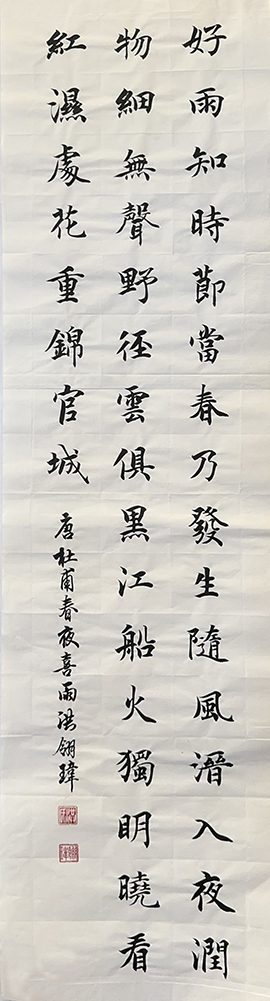 好雨知時節當春乃發生隨風潛入夜潤
物細無聲野徑雲俱黑江船火獨明曉看
紅濕處花重錦官城
唐杜甫春夜喜雨洪翎瑋